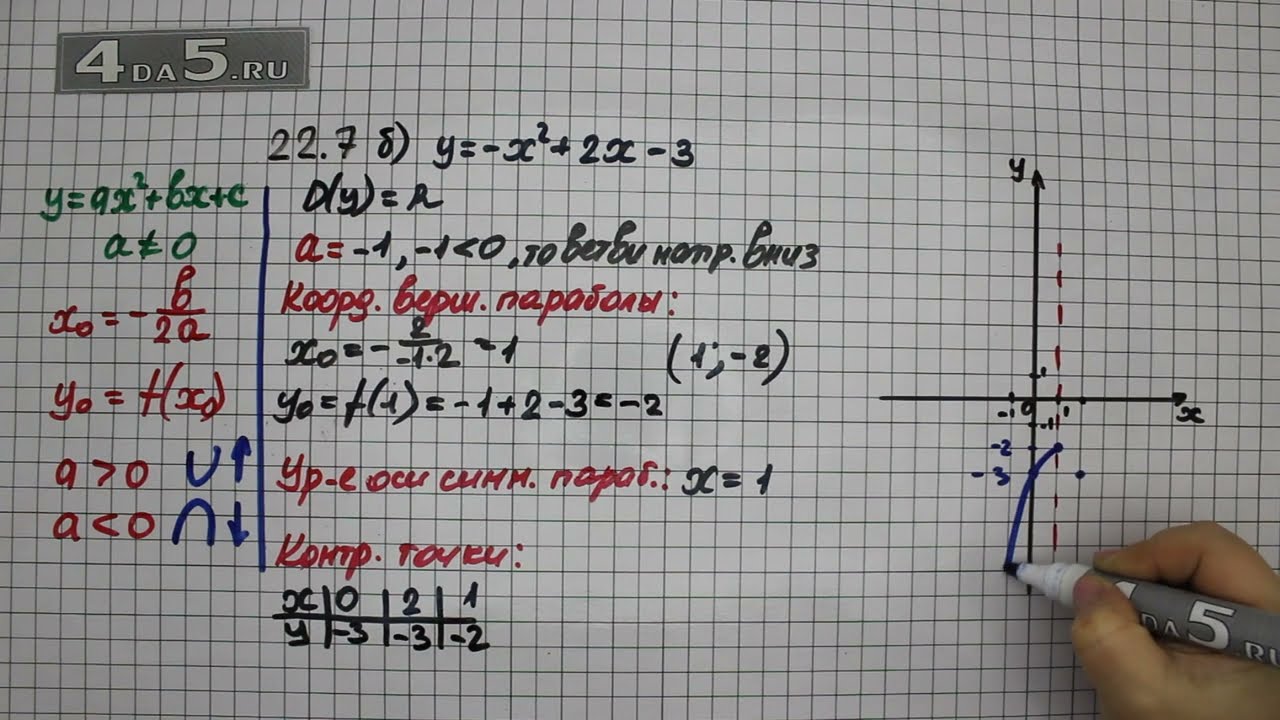 4DA5.RU
22.7 б) y=-x²+2x-3
y=ax²+bx+c
a≠0
x₀=-b/2a
y₀=f(x₀)
a>0 ∪↑
a<0 ∩↓
D(y)=R
a=-1, -1<0, то ветви напр. вниз
Коорд. верш. параболы:
x₀=-2/-1·2=1 (1;-2)
y₀=f(1)=-1+2-3=-2
Ур-е оси симм. параб.: x=1
Контр. точки:
x | 0 | 2 | 1
y | -3 | -3 | -2
y
1
-1 0 1 x
-1
-2
-3
4DA5.RU